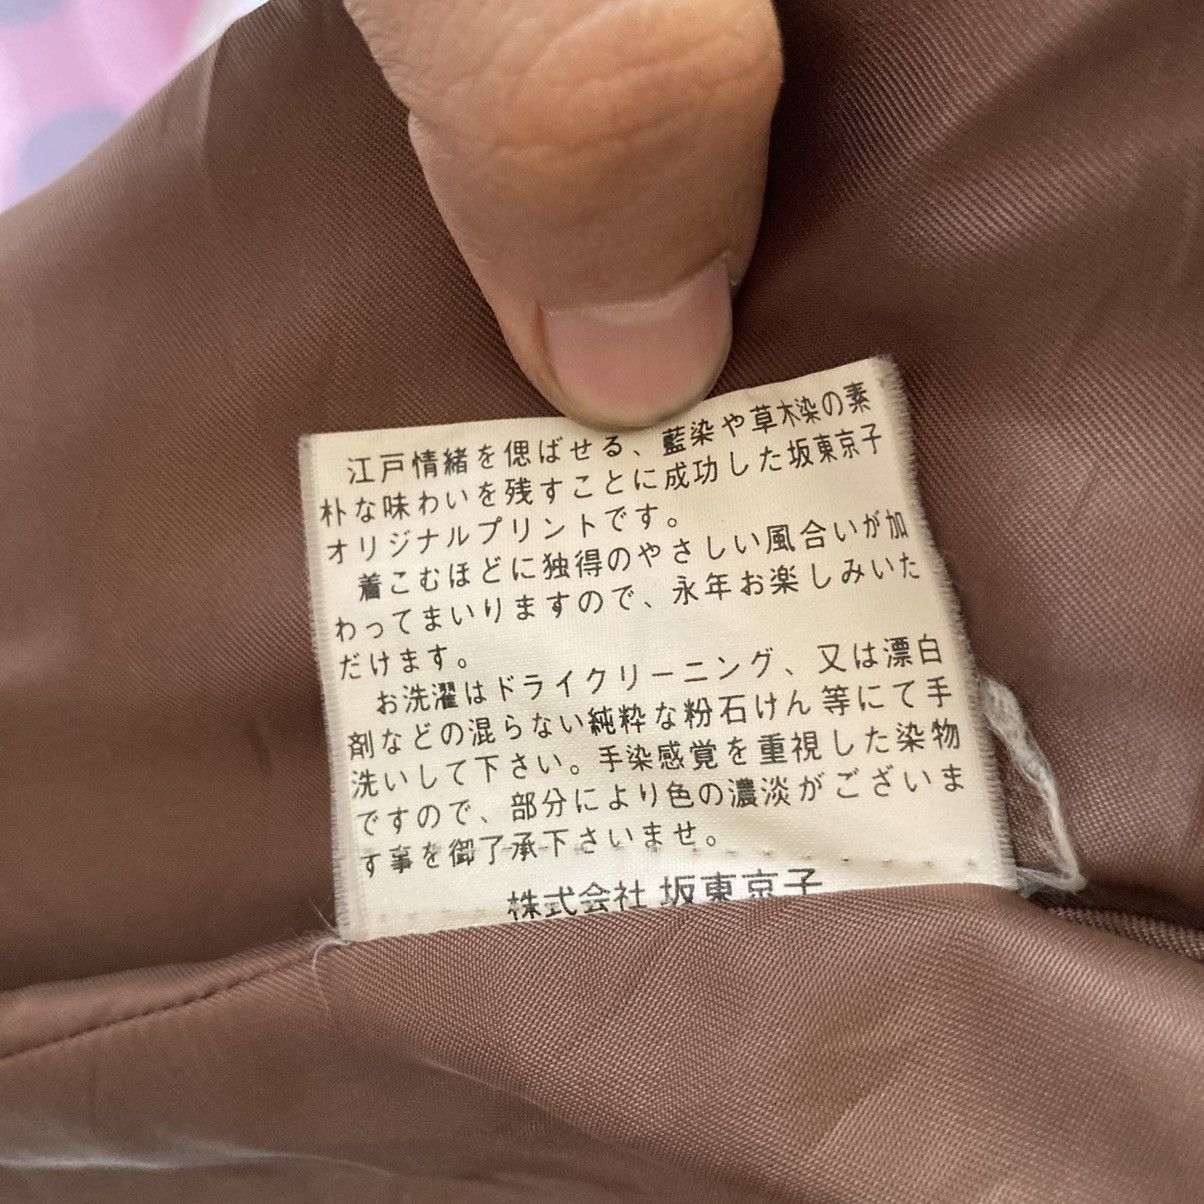 江戸情緒を偲ばせる、藍染や草木染の素
朴な味わいを残すことに成功した坂東京子
オリジナルプリントです。
着こむほどに独得のやさしい風合いが加
わってまいりますので、永年お楽しみいた
だけます。
お洗濯はドライクリーニング、又は漂白
剤などの混らない純粋な粉石けん等にて手
洗いして下さい。手染感覚を重視した染物
ですので、部分により色の濃淡がございま
す事を御了承下さいませ。
株式会社 坂東京子